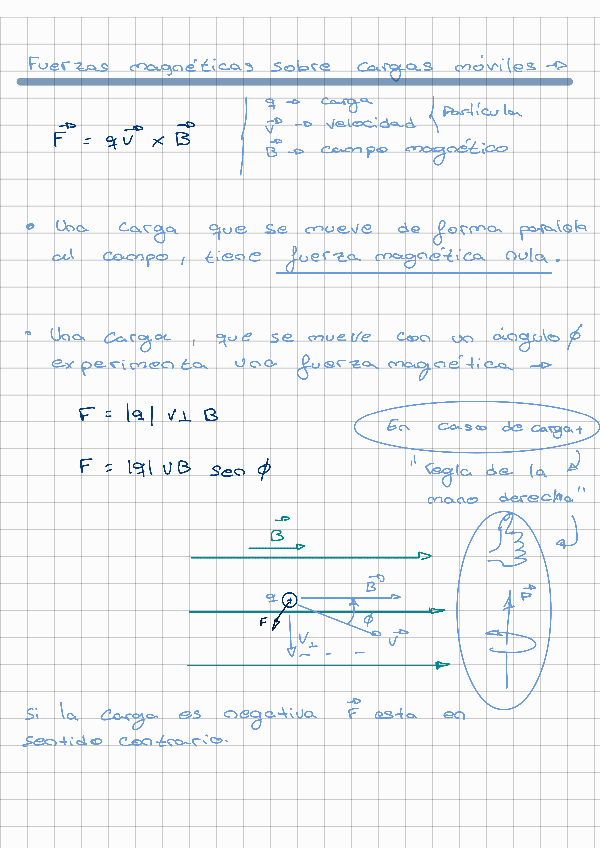 Fuerzas magnéticas sobre cargas móviles →
F⃗ = q v⃗ × B⃗
q → carga
v⃗ → velocidad
Partícula
B⃗ → campo magnético
• Una carga que se mueve de forma paralela
al campo, tiene fuerza magnética nula.
• Una carga, que se mueve con un ángulo ϕ
experimenta una fuerza magnética →
F = |q| v⊥ B
En caso de carga +
F = |q| v B sen ϕ
"regla de la
mano derecha"
B⃗
q
B⃗
F⃗
F
ϕ
v⊥
v⃗
Si la carga es negativa F⃗ esta en
sentido contrario.